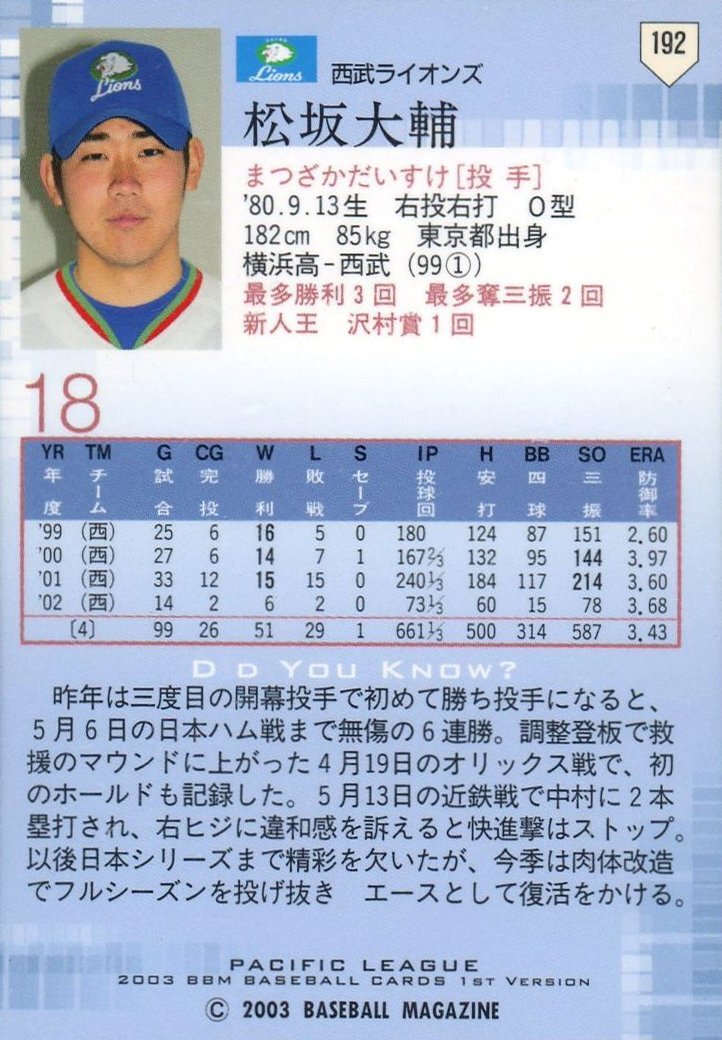 192
Lions
Lions
西武ライオンズ
松坂大輔
まつざかだいすけ[投 手]
'80.9.13生 右投右打 O型
182cm 85kg 東京都出身
横浜高-西武 (99①)
最多勝利3回 最多奪三振2回
新人王 沢村賞1回
18
YR TM G CG W L S IP H BB SO ERA
年度 チーム 試合 完投 勝利 敗戦 セーブ 投球回 安打 四球 三振 防御率
'99 (西) 25 6 16 5 0 180 124 87 151 2.60
'00 (西) 27 6 14 7 1 167⅔ 132 95 144 3.97
'01 (西) 33 12 15 15 0 240⅓ 184 117 214 3.60
'02 (西) 14 2 6 2 0 73⅓ 60 15 78 3.68
[4] 99 26 51 29 1 661⅓ 500 314 587 3.43
DID YOU KNOW?
昨年は三度目の開幕投手で初めて勝ち投手になると、
5月6日の日本ハム戦まで無傷の6連勝。調整登板で救
援のマウンドに上がった4月19日のオリックス戦で、初
のホールドも記録した。5月13日の近鉄戦で中村に2本
塁打され、右ヒジに違和感を訴えると快進撃はストップ。
以後日本シリーズまで精彩を欠いたが、今季は肉体改造
でフルシーズンを投げ抜き エースとして復活をかける。
PACIFIC LEAGUE
2003 BBM BASEBALL CARDS 1ST VERSION
© 2003 BASEBALL MAGAZINE